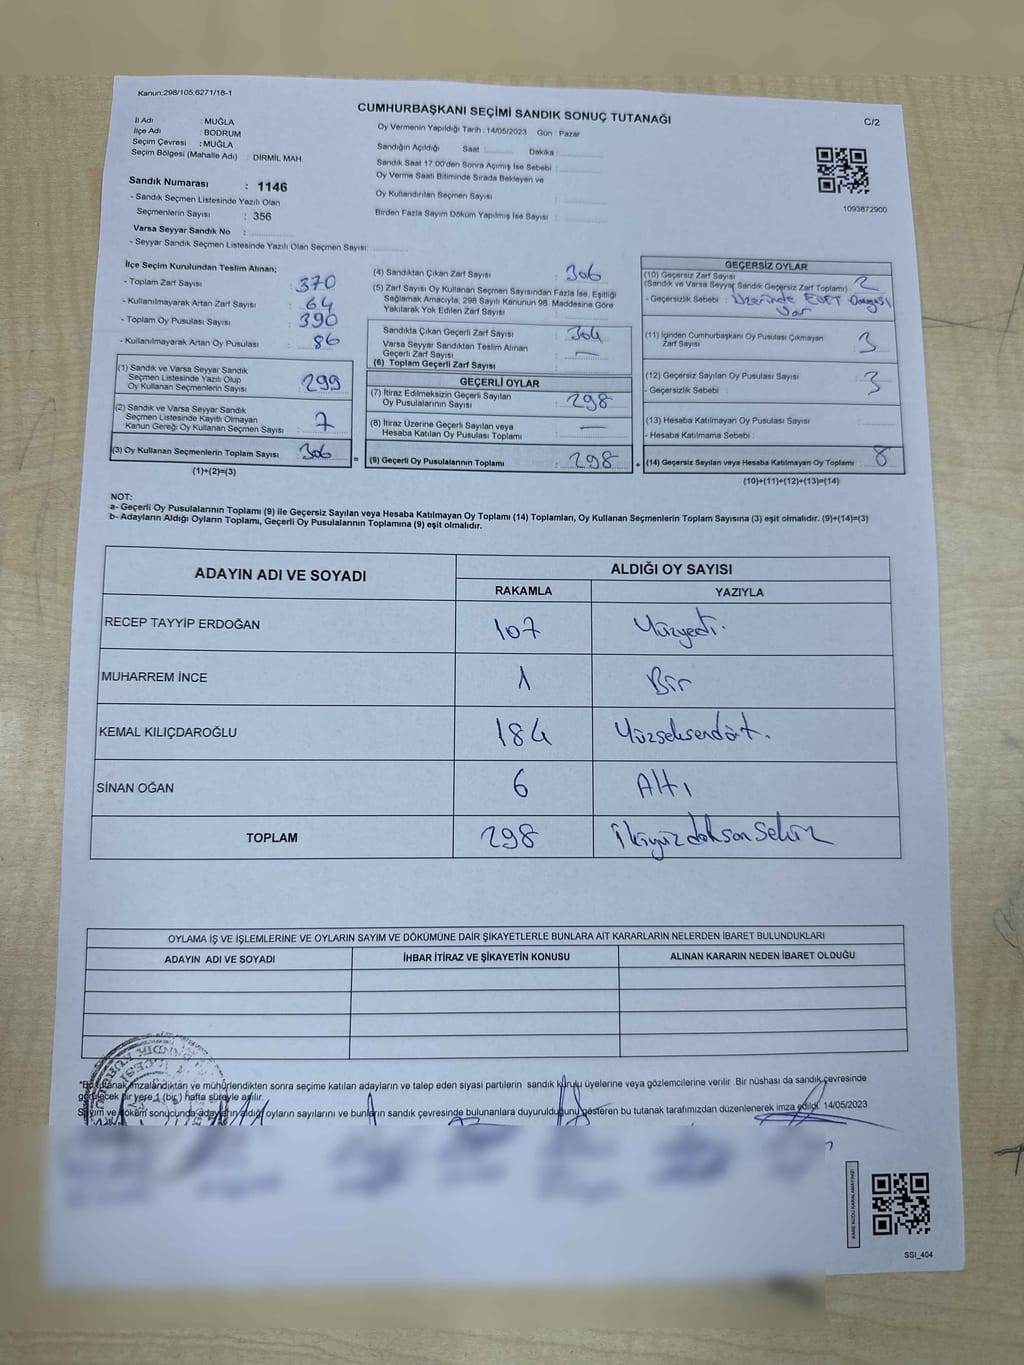 Kanun:298/105;6271/18-1
CUMHURBAŞKANI SEÇİMİ SANDIK SONUÇ TUTANAĞI
C/2
İl Adı : MUĞLA
İlçe Adı : BODRUM
Seçim Çevresi : MUĞLA
Seçim Bölgesi (Mahalle Adı) : DİRMİL MAH.
Sandık Numarası : 1146
- Sandık Seçmen Listesinde Yazılı Olan
Seçmenlerin Sayısı : 356
Varsa Seyyar Sandık No :
- Seyyar Sandık Seçmen Listesinde Yazılı Olan Seçmen Sayısı:
Oy Vermenin Yapıldığı Tarih : 14/05/2023 Gün : Pazar
Sandığın Açıldığı Saat : Dakika :
Sandık Saat 17:00'den Sonra Açılmış İse Sebebi :
Oy Verme Saati Bitiminde Sırada Bekleyen ve
Oy Kullandırılan Seçmen Sayısı :
Birden Fazla Sayım Döküm Yapılmış İse Sayısı :
1093872900
İlçe Seçim Kurulundan Teslim Alınan;
- Toplam Zarf Sayısı : 370
- Kullanılmayarak Artan Zarf Sayısı : 64
- Toplam Oy Pusulası Sayısı : 390
- Kullanılmayarak Artan Oy Pusulası : 86
(1) Sandık ve Varsa Seyyar Sandık
Seçmen Listesinde Yazılı Olup
Oy Kullanan Seçmenlerin Sayısı : 299
(2) Sandık ve Varsa Seyyar Sandık
Seçmen Listesinde Kayıtlı Olmayan
Kanun Gereği Oy Kullanan Seçmen Sayısı : 7
(3) Oy Kullanan Seçmenlerin Toplam Sayısı : 306
(1)+(2)=(3)
(4) Sandıktan Çıkan Zarf Sayısı : 306
(5) Zarf Sayısı Oy Kullanan Seçmen Sayısından Fazla İse, Eşitliği
Sağlamak Amacıyla, 298 Sayılı Kanunun 98. Maddesine Göre
Yakılarak Yok Edilen Zarf Sayısı :
Sandıkta Çıkan Geçerli Zarf Sayısı : 304
Varsa Seyyar Sandıktan Teslim Alınan
Geçerli Zarf Sayısı : —
(6) Toplam Geçerli Zarf Sayısı
GEÇERLİ OYLAR
(7) İtiraz Edilmeksizin Geçerli Sayılan
Oy Pusulalarının Sayısı : 298
(8) İtiraz Üzerine Geçerli Sayılan veya
Hesaba Katılan Oy Pusulası Toplamı : —
= (9) Geçerli Oy Pusulalarının Toplamı : 298
GEÇERSİZ OYLAR
(10) Geçersiz Zarf Sayısı
(Sandık ve Varsa Seyyar Sandık Geçersiz Zarf Toplamı) : 2
- Geçersizlik Sebebi : Üzerinde EVET Damgası
Var
(11) İçinden Cumhurbaşkanı Oy Pusulası Çıkmayan
Zarf Sayısı : 3
(12) Geçersiz Sayılan Oy Pusulası Sayısı : 3
- Geçersizlik Sebebi :
(13) Hesaba Katılmayan Oy Pusulası Sayısı :
- Hesaba Katılmama Sebebi :
+ (14) Geçersiz Sayılan veya Hesaba Katılmayan Oy Toplamı : 8
(10)+(11)+(12)+(13)=(14)
NOT:
a- Geçerli Oy Pusulalarının Toplamı (9) ile Geçersiz Sayılan veya Hesaba Katılmayan Oy Toplamı (14) Toplamları, Oy Kullanan Seçmenlerin Toplam Sayısına (3) eşit olmalıdır. (9)+(14)=(3)
b- Adayların Aldığı Oyların Toplamı, Geçerli Oy Pusulalarının Toplamına (9) eşit olmalıdır.
ADAYIN ADI VE SOYADI ALDIĞI OY SAYISI
RAKAMLA YAZIYLA
RECEP TAYYİP ERDOĞAN 107 Yüzyedi.
MUHARREM İNCE 1 Bir
KEMAL KILIÇDAROĞLU 184 Yüzseksendört.
SİNAN OĞAN 6 Altı
TOPLAM 298 İkiyüzdoksan Sekiz
OYLAMA İŞ VE İŞLEMLERİNE VE OYLARIN SAYIM VE DÖKÜMÜNE DAİR ŞİKAYETLERLE BUNLARA AİT KARARLARIN NELERDEN İBARET BULUNDUKLARI
ADAYIN ADI VE SOYADI İHBAR İTİRAZ VE ŞİKAYETİN KONUSU ALINAN KARARIN NEDEN İBARET OLDUĞU
*Bu tutanak imzalandıktan ve mühürlendikten sonra seçime katılan adayların ve talep eden siyasi partilerin sandık kurulu üyelerine veya gözlemcilerine verilir. Bir nüshası da sandık çevresinde
görülecek bir yere 1 (bir) hafta süreyle asılır.
Sayım ve döküm sonucunda adayların aldığı oyların sayılarını ve bunların sandık çevresinde bulunanlara duyurulduğunu gösteren bu tutanak tarafımızdan düzenlenerek imza edildi. 14/05/2023
KARE KODU KARALAMAYINIZ!
SSI_404